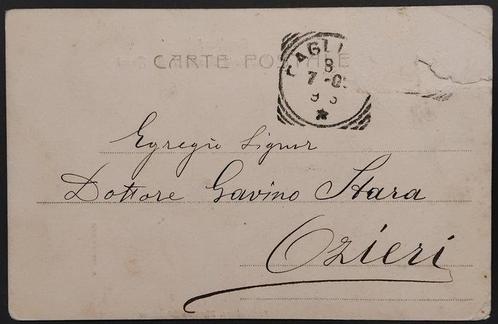 CARTE POSTALE
CAGLI
8
7-0
Egregio Signor
Dottore Gavino Stara
Ozieri